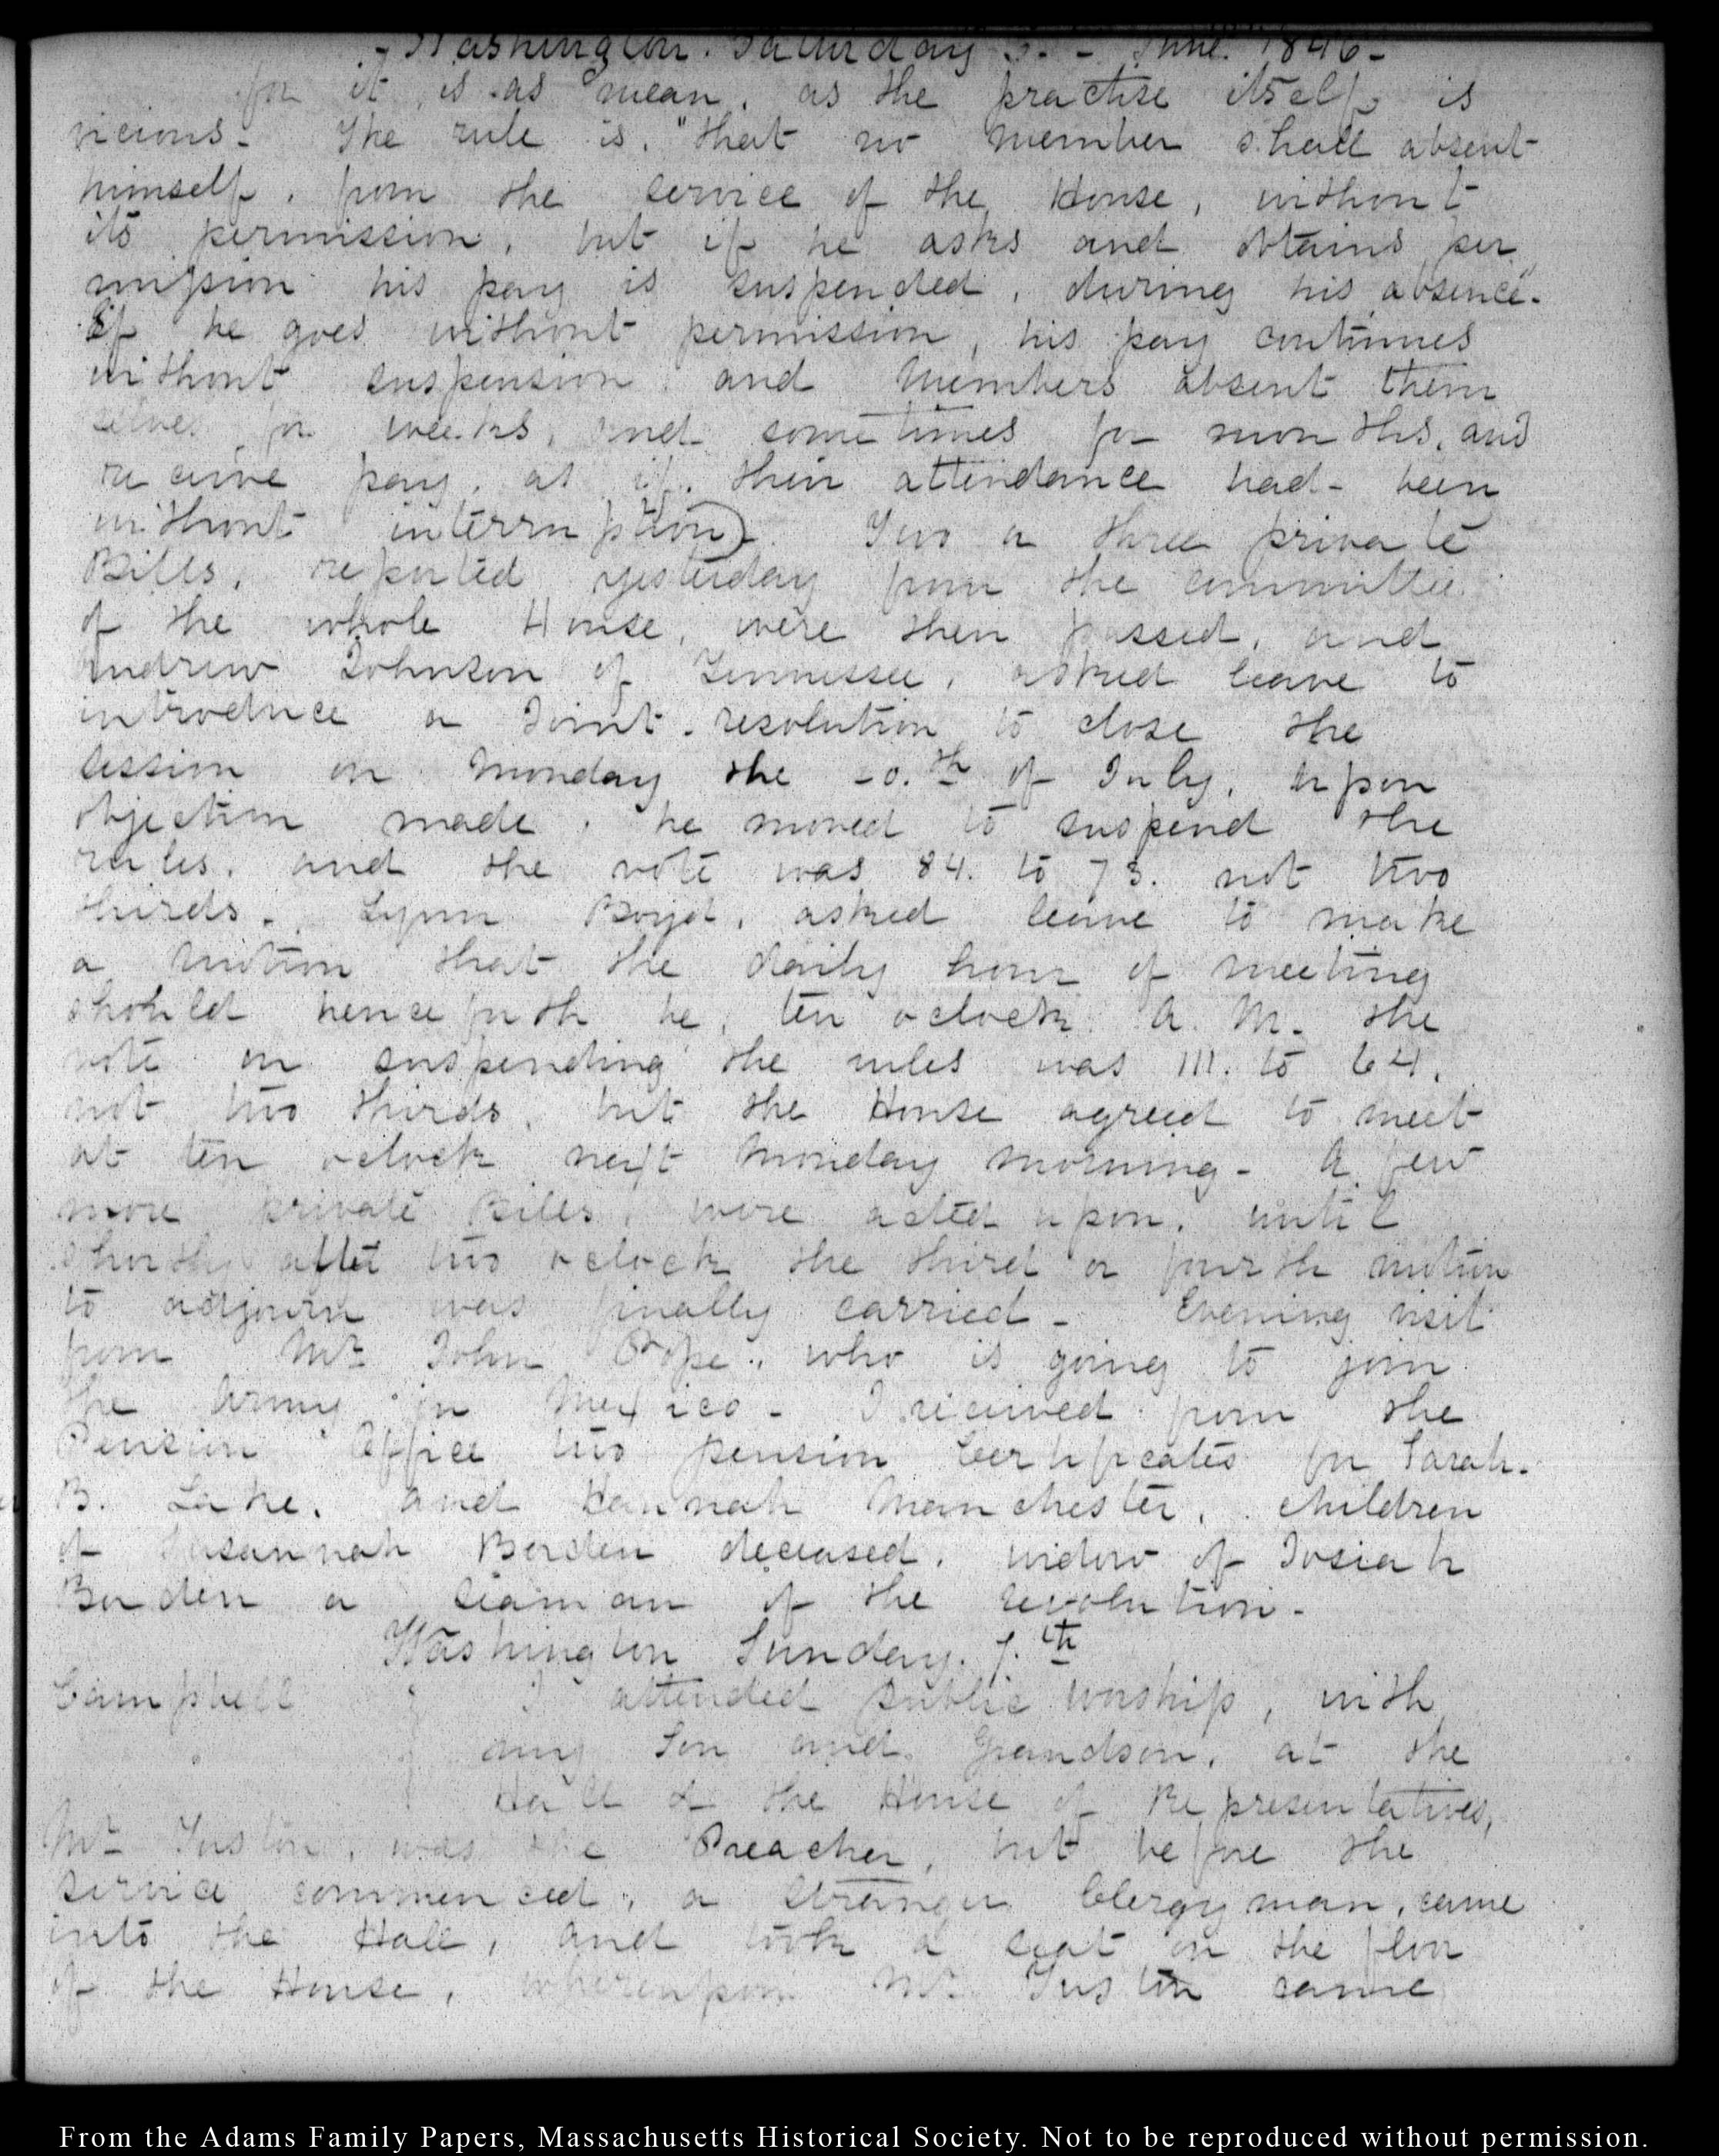 Washington. Saturday June. 1846-
for it is as mean, as the practise itself is
vicious- The rule is, "that no member shall absent
himself, from the service of the House, without
its permission, but if he asks and obtains per
mission his pay is suspended, during his absence"-
If he goes without permission, his pay continues
without suspension and Members absent them
selves for weeks, and sometimes for months, and
receive pay, as if their attendance had- been
without interruption). Two or three private
Bills, reported yesterday from the committee
of the whole House, were then passed, and
Andrew Johnson of Tennessee, asked leave to
introduce a Joint-resolution to close the
session on Monday the of July, upon
objection made, he moved to suspend the
rules, and the vote was 84. to 73. not two
thirds- Lynn Boyd, asked leave to make
a motion that the daily hour of meeting
should henceforth be, ten oclock A. M. the
vote on suspending the rules was 111. to 64.
not two thirds, but the House agreed to meet
at ten oclock next Monday morning- A few
more private Bills, were acted upon, until
shortly after two oclock the third or fourth motion
to adjourn was finally carried- Evening visit
from Mr John Pope, who is going to join
the Army in Mexico- I received from the
Pension Office two pension Certificates for Sarah-
B. Lake, and Hannah Manchester, children
of Susannah Borden deceased, widow of Josiah
Borden a seaman of the revolution-
Washington Sunday. 7.th
Campbell I attended public worship, with
my Son and Grandson, at the
Hall of the House of Representatives,
Mr Tustin, was the Preacher, but before the
service commenced, a stranger Clergyman, came
into the Hall, and took a seat on the floor
of the House, whereupon Mr Tustin came
From the Adams Family Papers, Massachusetts Historical Society. Not to be reproduced without permission.